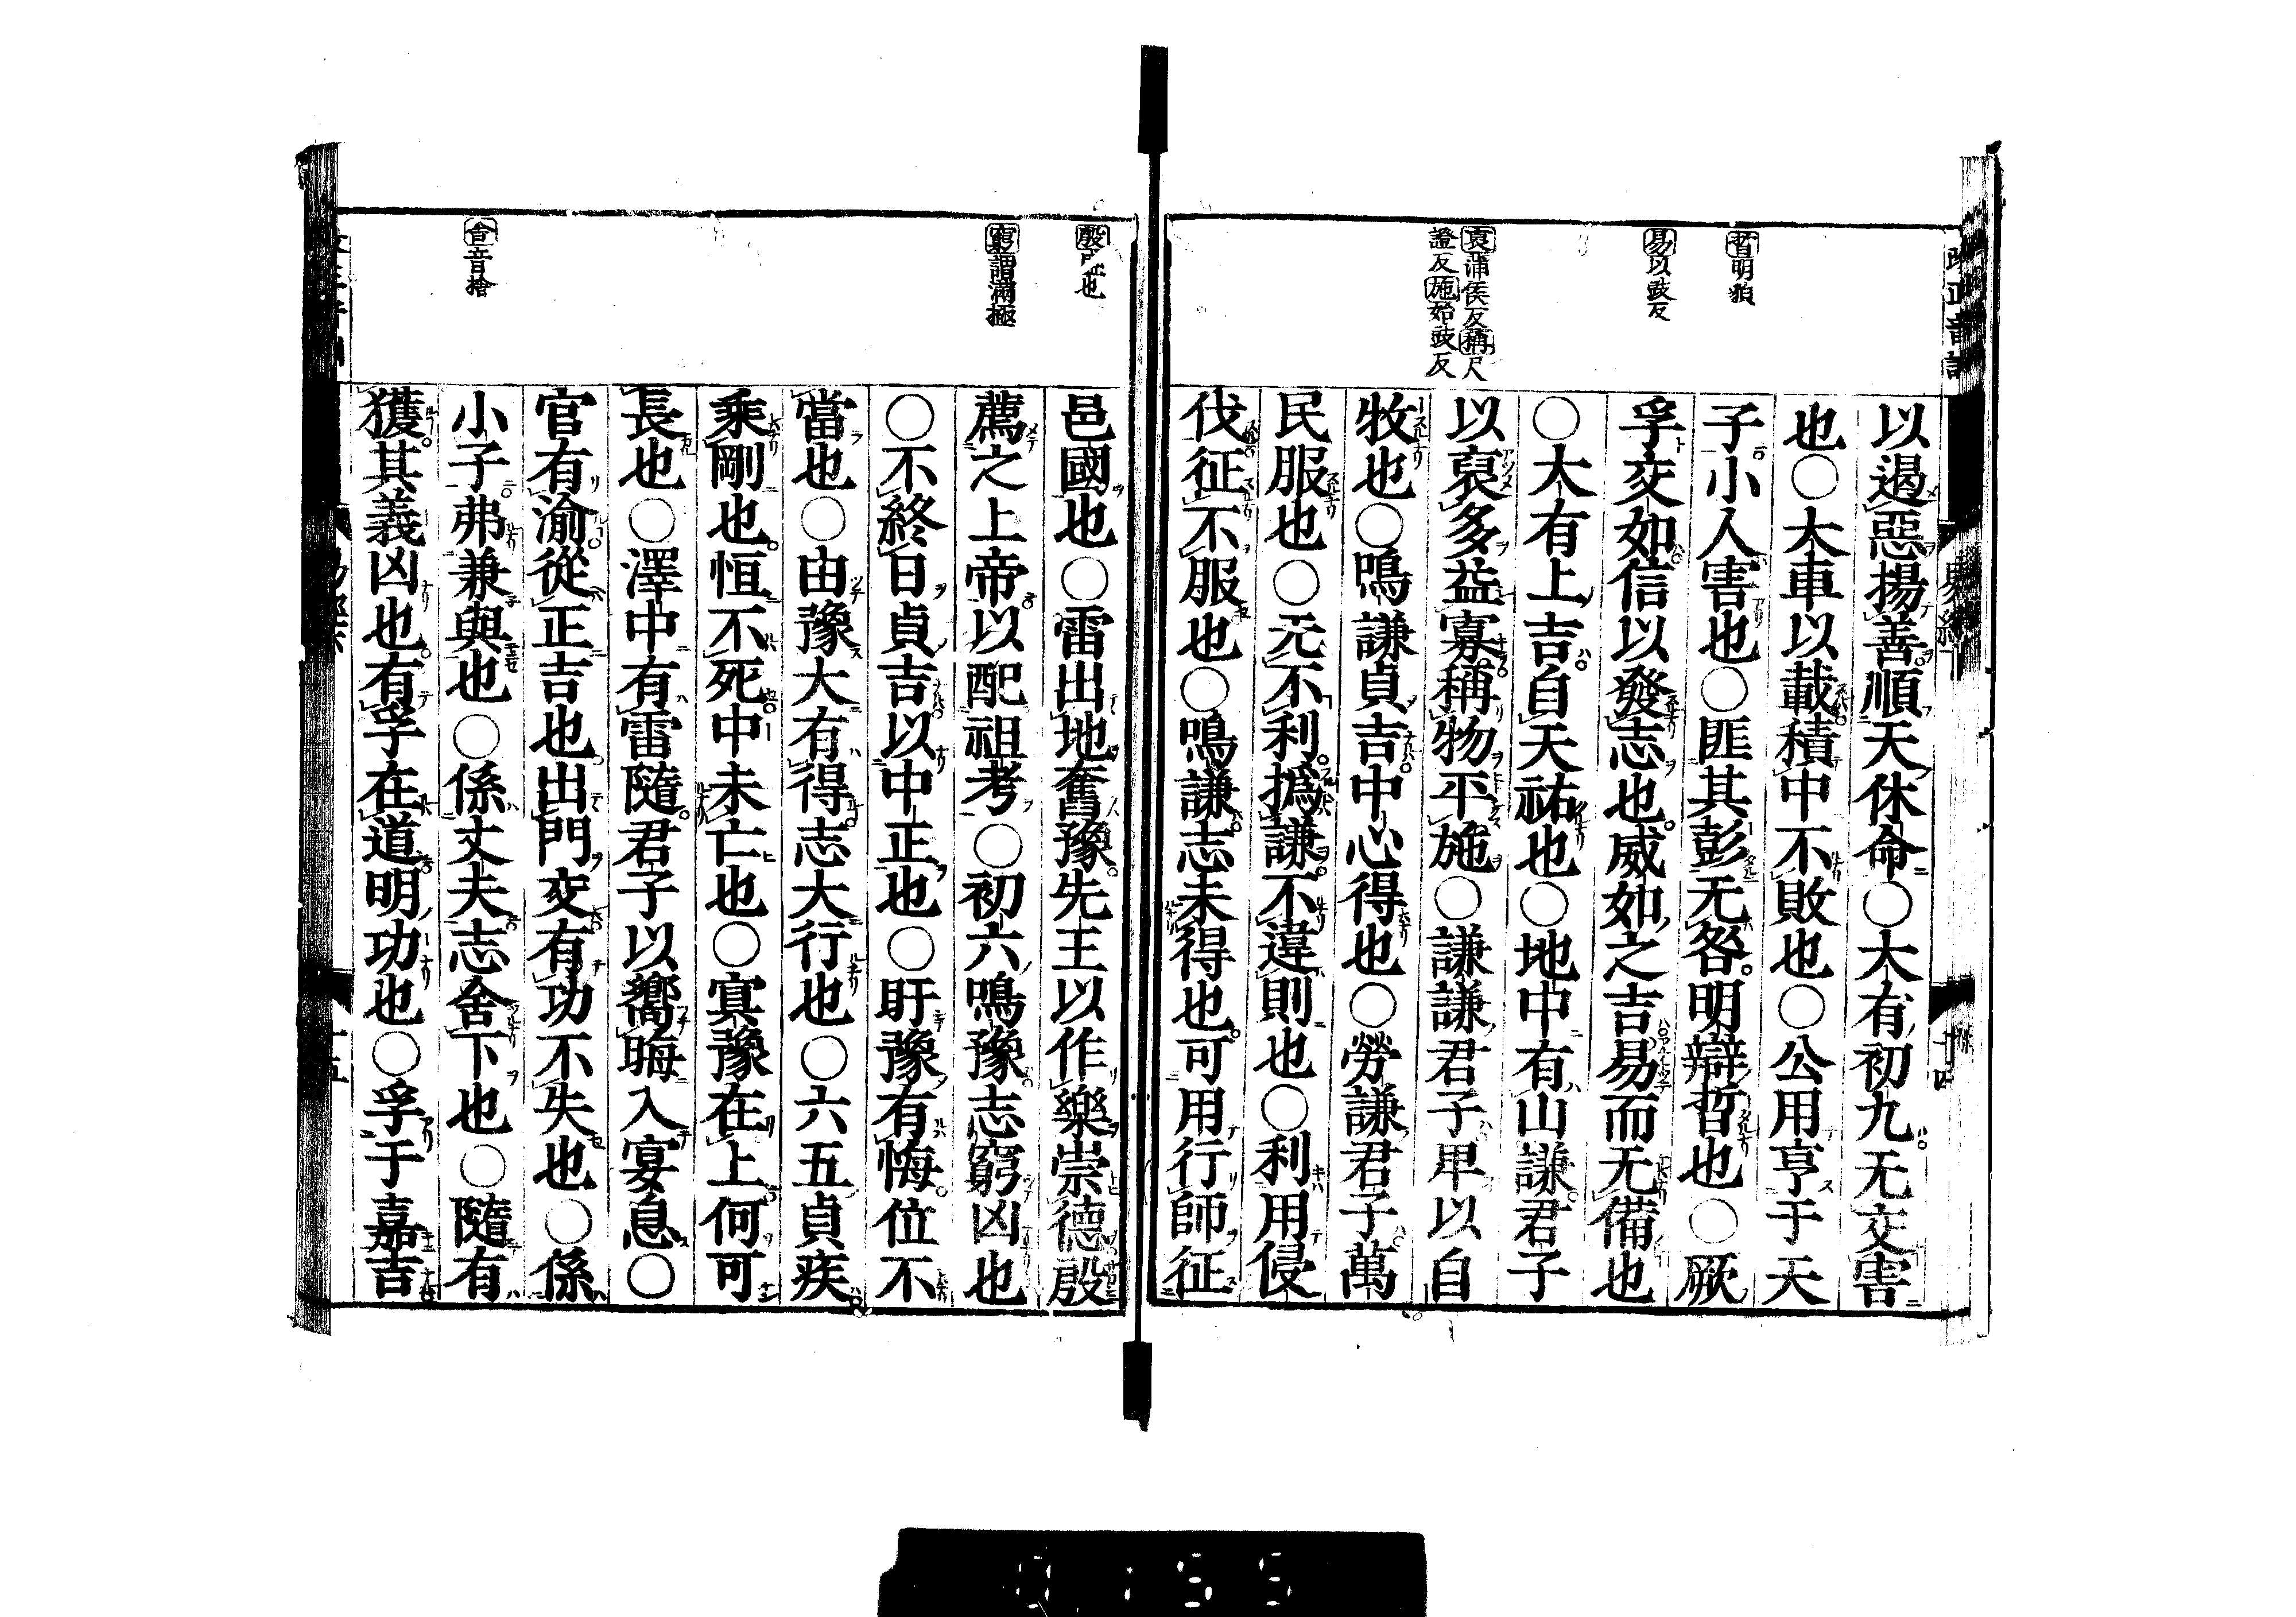 哲明貌
易以豉反
裒蒲侯反稱尺
證反施始豉反
以遏惡揚善順天休命○大有初九无交害
也○大車以載積中不敗也○公用亨于天
子小人害也○匪其彭无咎明辯哲也○厥
孚交如信以發志也威如之吉易而无備也
○大有上吉自天祐也○地中有山謙君子
以裒多益寡稱物平施○謙謙君子卑以自
牧也○鳴謙貞吉中心得也○勞謙君子萬
民服也○无不利撝謙不違則也○利用侵
伐征不服也○鳴謙志未得也可用行師征
殷 也
窮謂滿極
舍音捨
邑國也○雷出地奮豫先王以作樂崇德殷
薦之上帝以配祖考○初六鳴豫志窮凶也
○不終日貞吉以中正也○盱豫有悔位不
當也○由豫大有得志大行也○六五貞疾
乘剛也恒不死中未亡也○冥豫在上何可
長也○澤中有雷隨君子以嚮晦入宴息○
官有渝從正吉也出門交有功不失也○係
小子弗兼與也○係丈夫志舍下也○隨有
獲其義凶也有孚在道明功也○孚于嘉吉
易經
十四
十五
0155